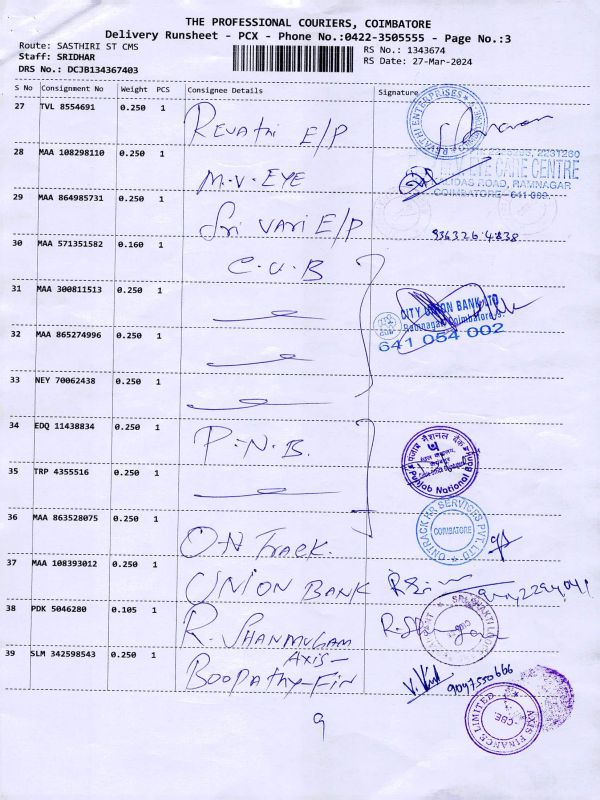 THE PROFESSIONAL COURIERS, COIMBATORE
Delivery Runsheet - PCX - Phone No.:0422-3505555 - Page No.:3
Route: SASTHIRI ST CMS
RS No.: 1343674
Staff: SRIDHAR
RS Date: 27-Mar-2024
DRS No.: DCJB134367403
S No Consignment No Weight PCS Consignee Details Signature
27 TVL 8554691 0.250 1 Revathi E/P
REVATHI ENTERPRISES
28 MAA 108298110 0.250 1 M.V-EYE
EYE CARE CENTRE
ROAD, RAMNAGAR
COIMBATORE - 641 009.
29 MAA 864985731 0.250 1 Sri VARI E/P
936326 4838
30 MAA 571351582 0.160 1 C.U.B
31 MAA 300811513 0.250 1
CITY UNION BANK LTD
Ramnagar, Coimbatore
641 054 002
32 MAA 865274996 0.250 1
33 NEY 70062438 0.250 1
34 EDQ 11438834 0.250 1 P-N.B.
Punjab National Bank
35 TRP 4355516 0.250 1
36 MAA 863528075 0.250 1 O-N Track.
ONTRACK HR SERVICES PVT. LTD
COIMBATORE
37 MAA 108393012 0.250 1 UNION BANK
38 PDK 5046280 0.105 1 R. SHANMUGAM
39 SLM 342598543 0.250 1 Boopathy-Fin
Axis-
9047550666
AXIS FINANCE LIMITED
CBE
9